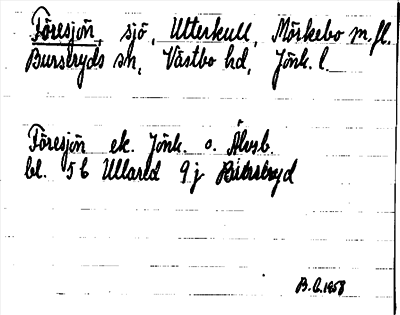 Föresjön, sjö, Utterkull, Mörkebo m.fl.
Burseryds sn, Västbo hd, Jönk. l.
Föresjön ek. Jönk. o. Älvsb.
bl. 5b Ullared 9j Burseryd
B.E.1958